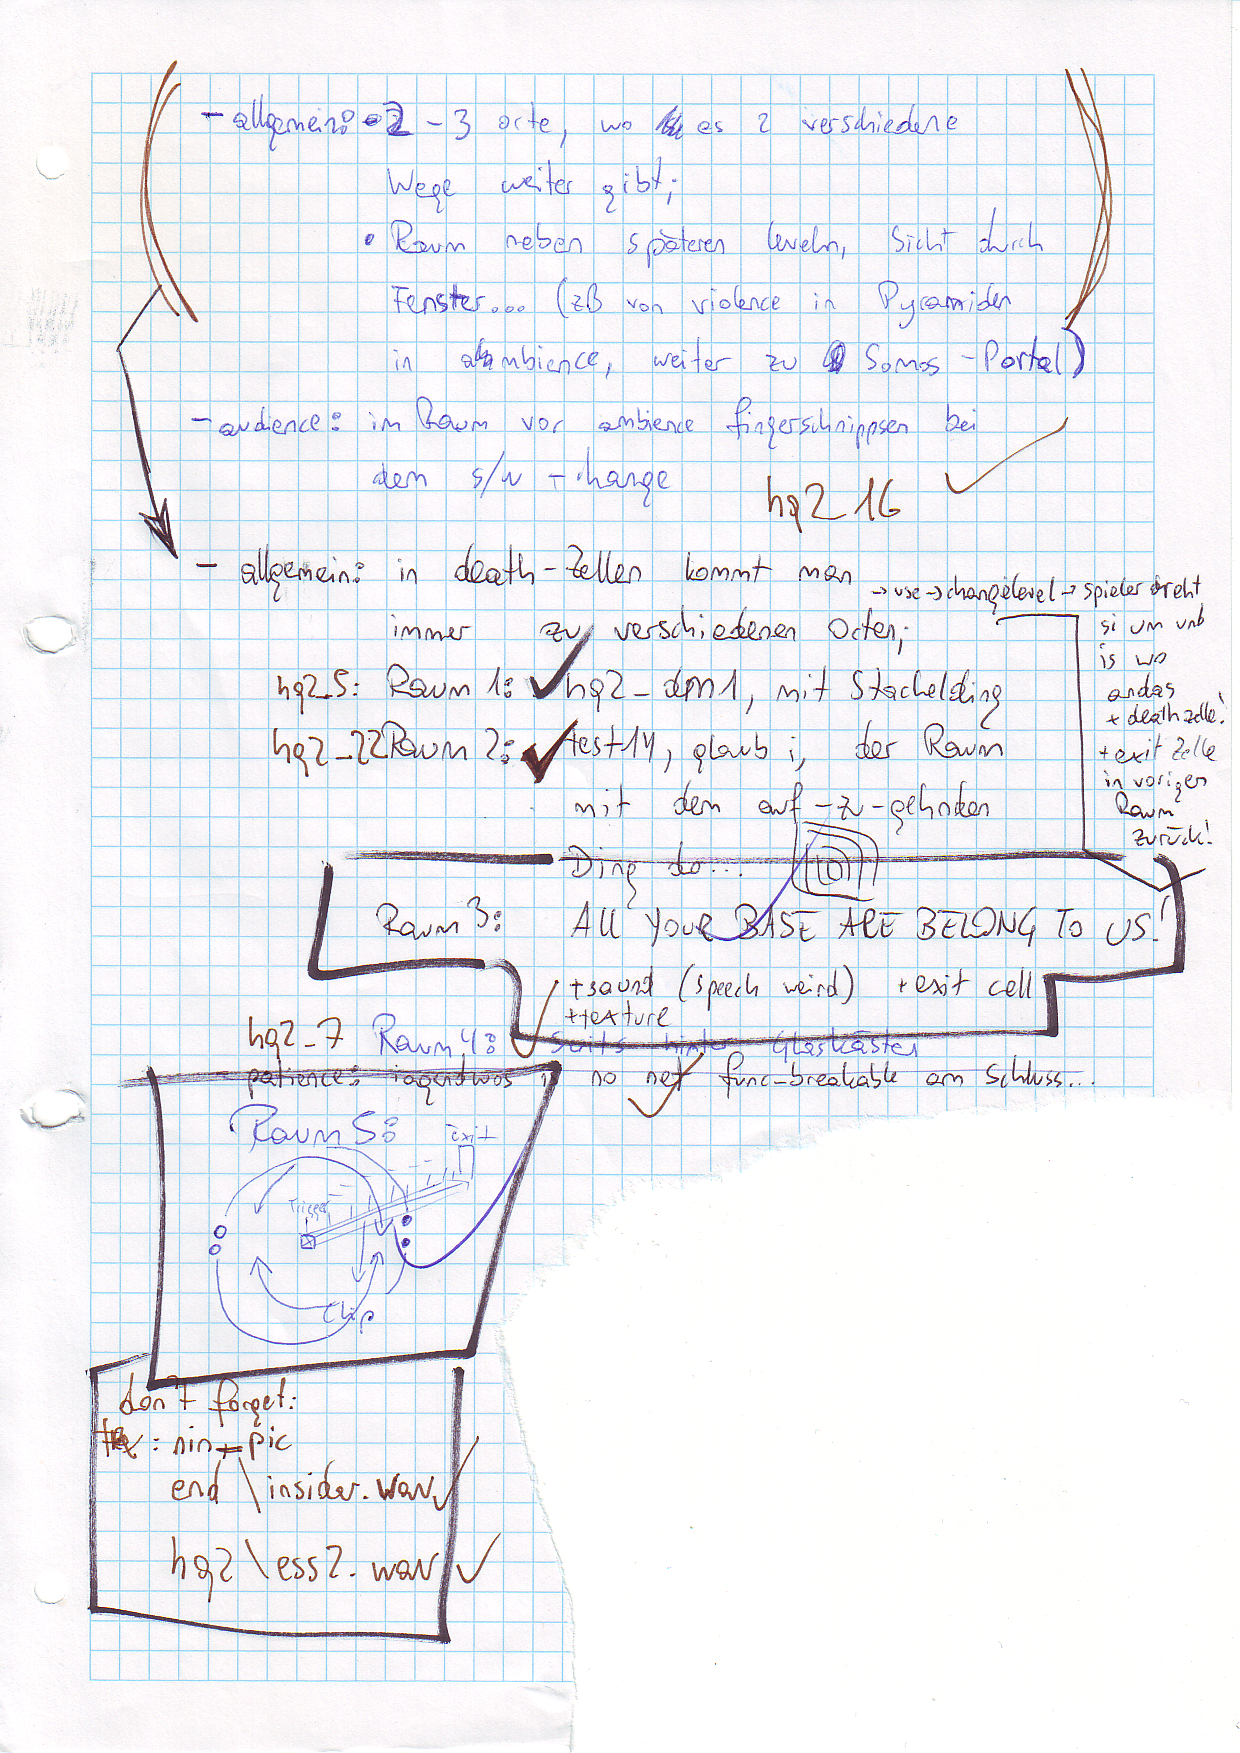 - allgemein: • 2 - 3 orte, wo es 2 verschiedene
Wege weiter gibt;
• Raum neben späteren leveln, Sicht durch
Fenster... (zB von violence in Pyramiden
in ambience, weiter zu Somos-Portal)
- audience: im Raum vor ambience fingerschnippsen bei
dem s/w - change
hq2 16
- allgemein: in death-Zellen kommt man
immer zu verschiedenen Orten;
→ use → changelevel → spieler dreht
si um und
is wo
andas
+ deathzelle!
+ exit Zelle
in vorigen
Raum
zurück!
hq2_5: Raum 1: hq2_dm1, mit Stachelding
hq2_22 Raum 2: test14, glaub i, der Raum
mit dem auf-zu-gehnden
Ding do...
Raum 3: All YOUR BASE ARE BELONG TO US!
+ sound (speech weird) + exit cell
+ texture
hq2_7 Raum 4: Suits hinter Glaskästen
patience: irgendwos is no net func_breakable am Schluss...
Raum 5:
Exit
Trigger
Clip
don't forget:
: nin_pic
end\insider.wav
hq2\ess2.wav